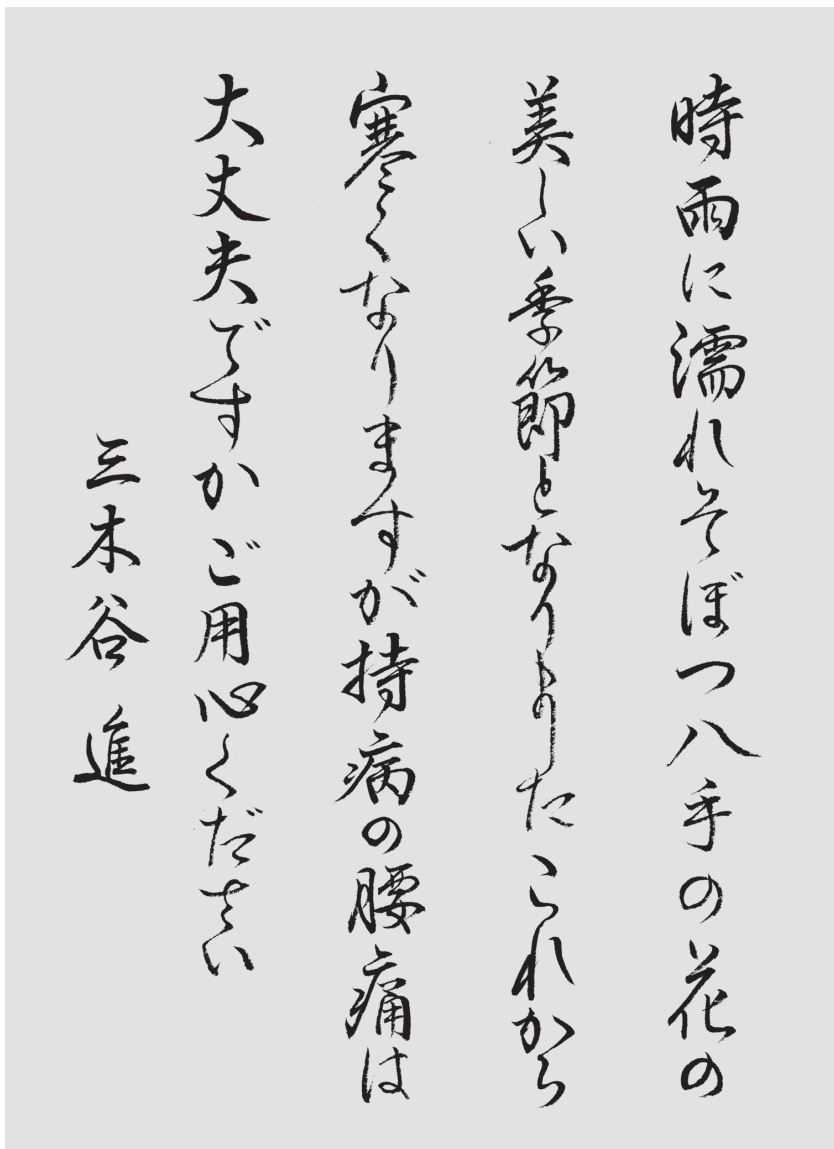 時雨に濡れそぼつ八手の花の
美しい季節となりましたこれから
寒くなりますが持病の腰痛は
大丈夫ですかご用心ください
三木谷 進